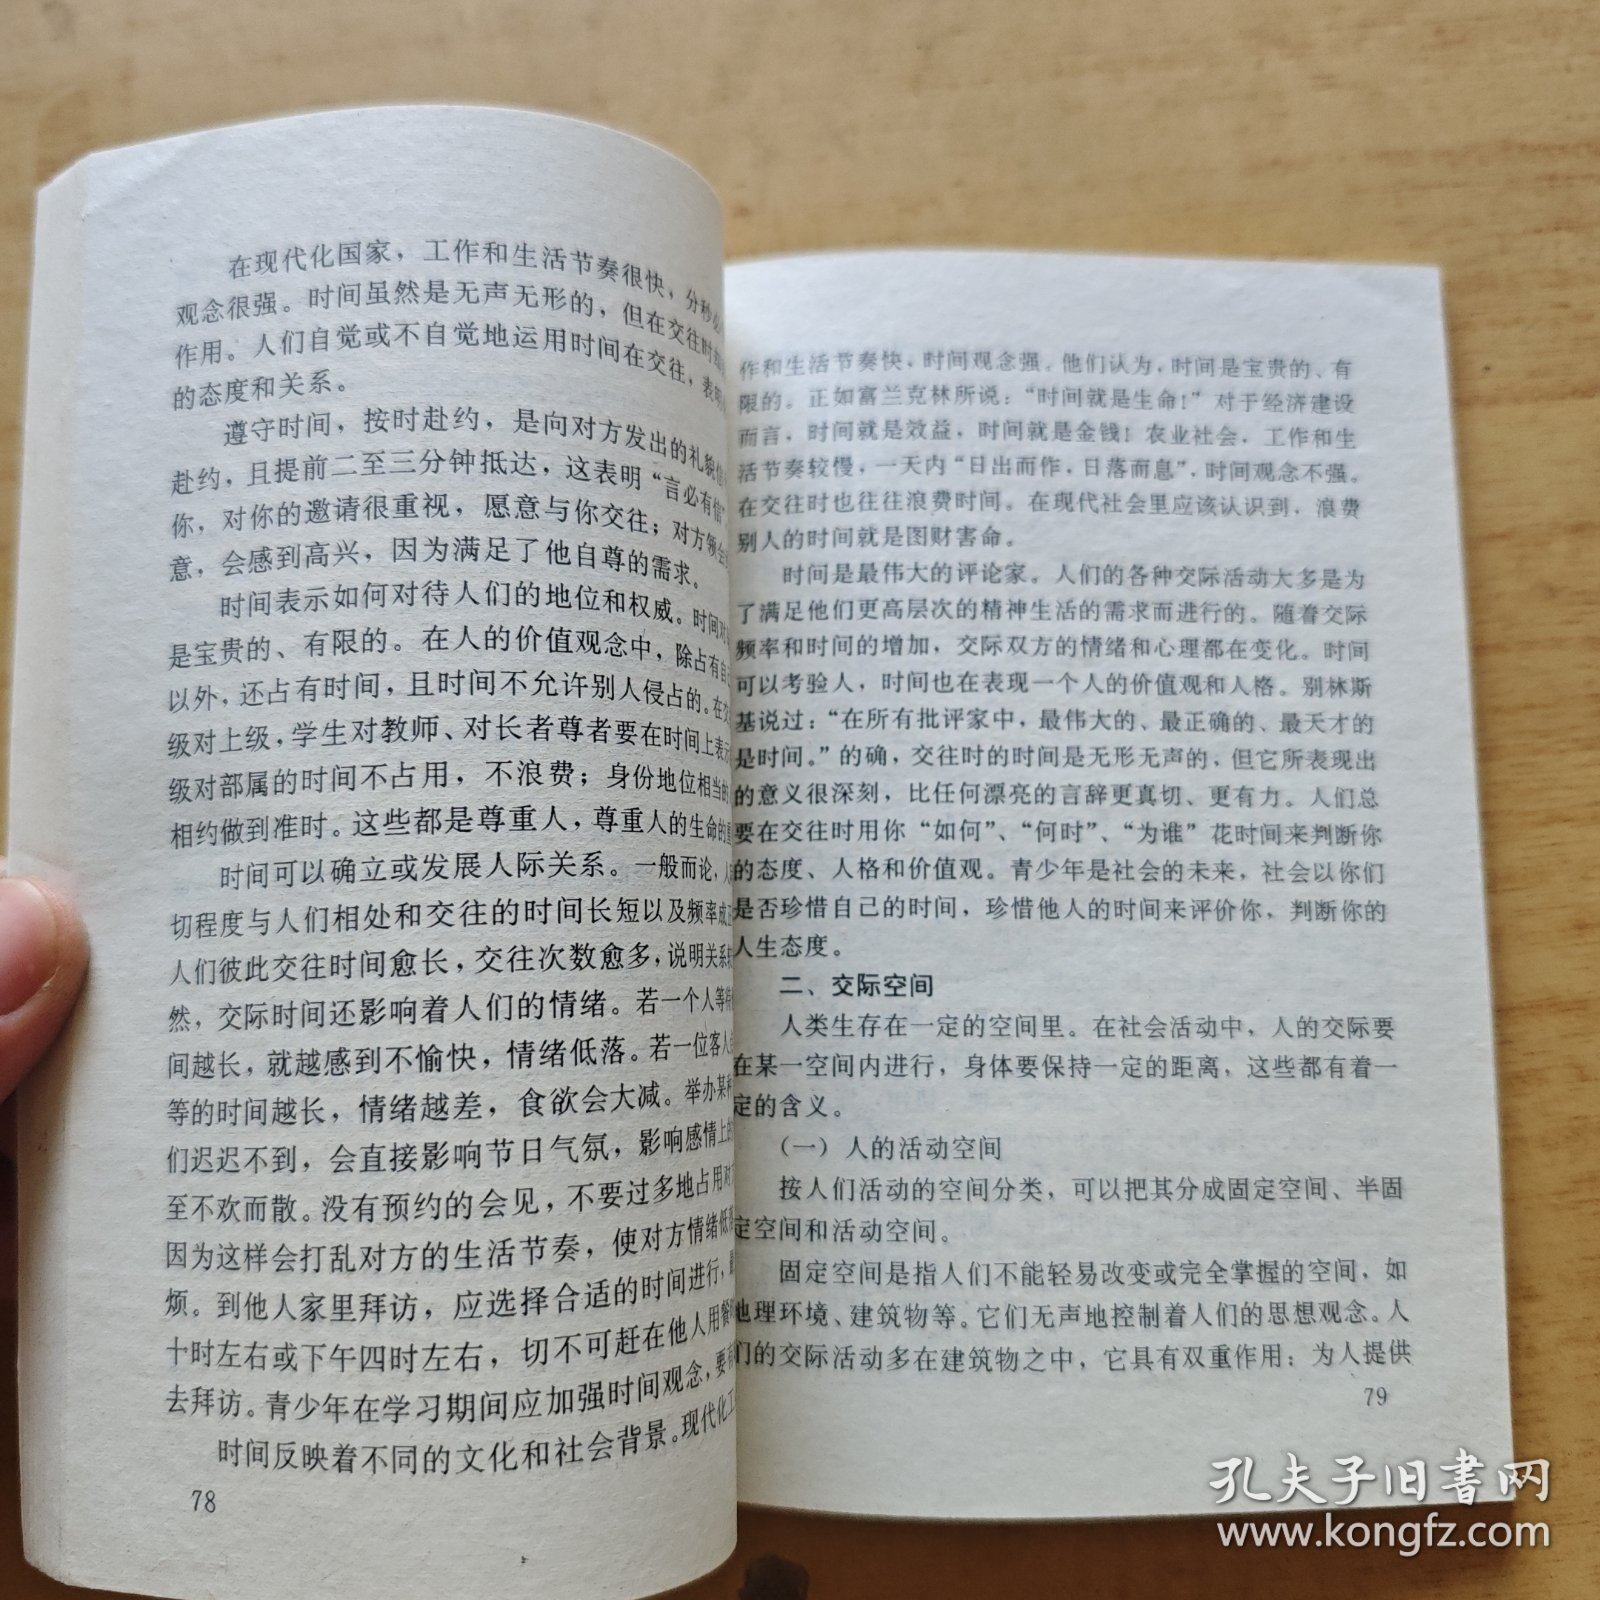 在现代化国家，工作和生活节奏很快，分秒必
观念很强。时间虽然是无声无形的，但在交往时
作用。人们自觉或不自觉地运用时间在交往，表明
的态度和关系。
遵守时间，按时赴约，是向对方发出的礼貌信
赴约，且提前二至三分钟抵达，这表明“言必有信”
你，对你的邀请很重视，愿意与你交往；对方领会
意，会感到高兴，因为满足了他自尊的需求。
时间表示如何对待人们的地位和权威。时间对
是宝贵的、有限的。在人的价值观念中，除占有自
以外，还占有时间，且时间不允许别人侵占的。在交
级对上级，学生对教师、对长者尊者要在时间上表示
级对部属的时间不占用，不浪费；身份地位相当的
相约做到准时。这些都是尊重人，尊重人的生命的重
时间可以确立或发展人际关系。一般而论，人
切程度与人们相处和交往的时间长短以及频率成正
人们彼此交往时间愈长，交往次数愈多，说明关系
然，交际时间还影响着人们的情绪。若一个人等待
间越长，就越感到不愉快，情绪低落。若一位客人
等的时间越长，情绪越差，食欲会大减。举办某种
们迟迟不到，会直接影响节日气氛，影响感情上的
至不欢而散。没有预约的会见，不要过多地占用对
因为这样会打乱对方的生活节奏，使对方情绪低落
烦。到他人家里拜访，应选择合适的时间进行，最
十时左右或下午四时左右，切不可赶在他人用餐
去拜访。青少年在学习期间应加强时间观念，要
时间反映着不同的文化和社会背景。现代化工
78
作和生活节奏快，时间观念强。他们认为，时间是宝贵的、有
限的。正如富兰克林所说：“时间就是生命！”对于经济建设
而言，时间就是效益，时间就是金钱！农业社会，工作和生
活节奏较慢，一天内“日出而作，日落而息”，时间观念不强。
在交往时也往往浪费时间。在现代社会里应该认识到，浪费
别人的时间就是图财害命。
时间是最伟大的评论家。人们的各种交际活动大多是为
了满足他们更高层次的精神生活的需求而进行的。随着交际
频率和时间的增加，交际双方的情绪和心理都在变化。时间
可以考验人，时间也在表现一个人的价值观和人格。别林斯
基说过：“在所有批评家中，最伟大的、最正确的、最天才的
是时间。”的确，交往时的时间是无形无声的，但它所表现出
的意义很深刻，比任何漂亮的言辞更真切、更有力。人们总
要在交往时用你“如何”、“何时”、“为谁”花时间来判断你
的态度、人格和价值观。青少年是社会的未来，社会以你们
是否珍惜自己的时间，珍惜他人的时间来评价你，判断你的
人生态度。
二、交际空间
人类生存在一定的空间里。在社会活动中，人的交际要
在某一空间内进行，身体要保持一定的距离，这些都有着一
定的含义。
（一）人的活动空间
按人们活动的空间分类，可以把其分成固定空间、半固
定空间和活动空间。
固定空间是指人们不能轻易改变或完全掌握的空间，如
地理环境、建筑物等。它们无声地控制着人们的思想观念。人
们的交际活动多在建筑物之中，它具有双重作用：为人提供
79
孔夫子旧书网
www.kongfz.com